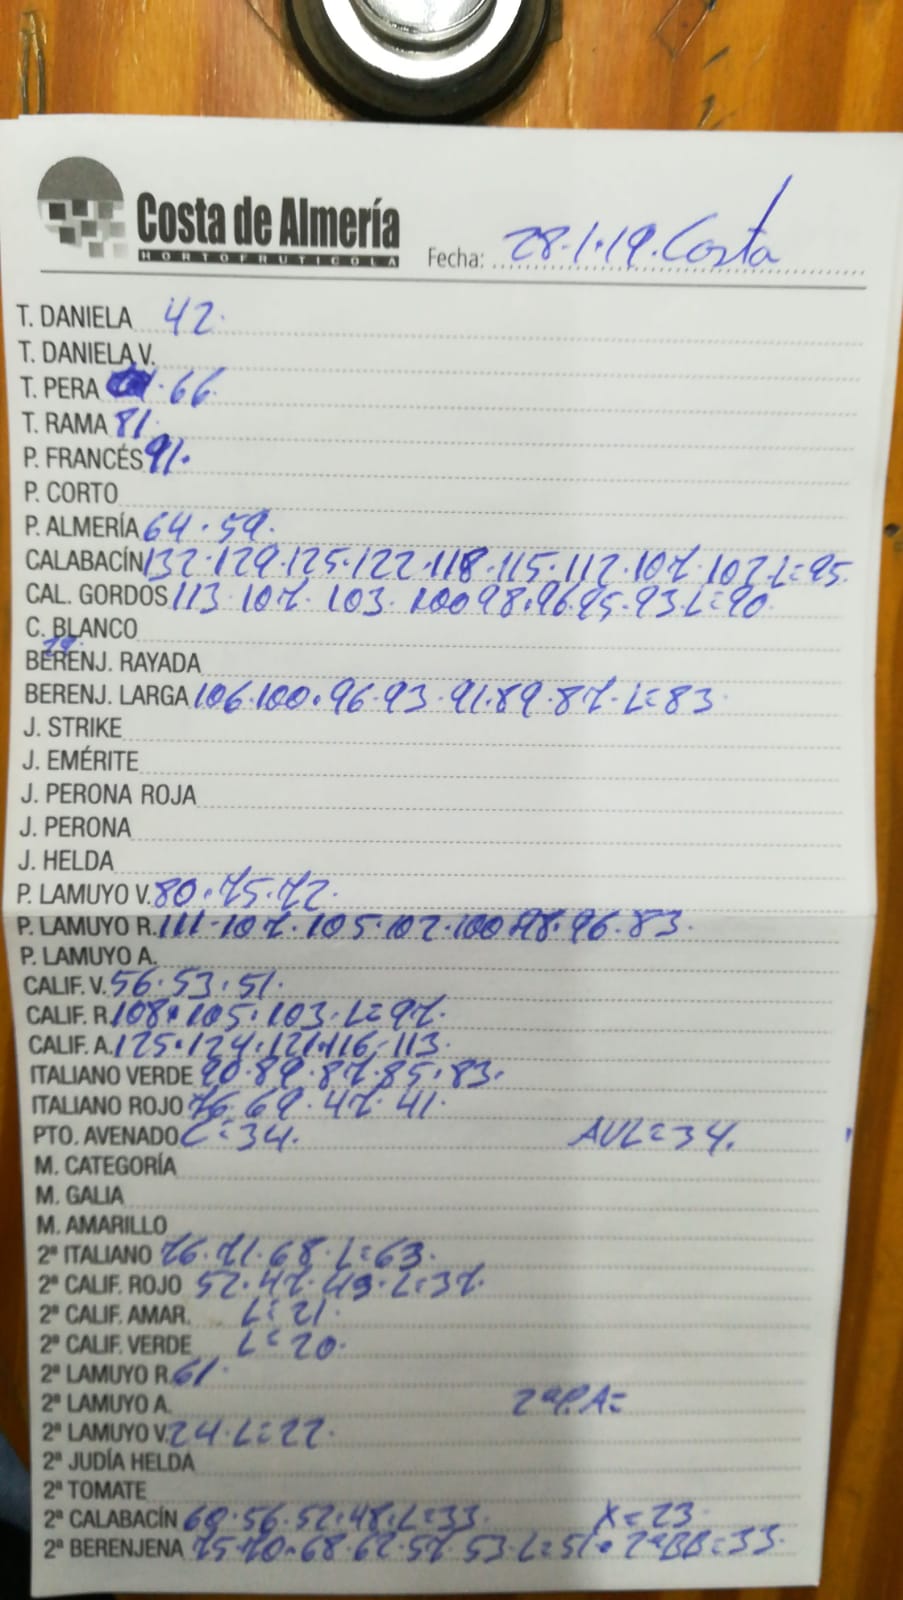 Costa de Almería
HORTOFRUTICOLA
Fecha: 28.1.19. Costa
T. DANIELA 42.
T. DANIELA V.
T. PERA 66.
T. RAMA 81.
P. FRANCÉS 91.
P. CORTO
P. ALMERÍA 64.59.
CALABACÍN 132.129.125.122.118.115.112.107.102.L=95.
CAL. GORDOS 113.107.103.100 98.96.95.93.L=90.
C. BLANCO
BERENJ. RAYADA
BERENJ. LARGA 106.100.96.93.91.89.87.L=83.
J. STRIKE
J. EMÉRITE
J. PERONA ROJA
J. PERONA
J. HELDA
P. LAMUYO V. 80.75.72.
P. LAMUYO R. 111.107.105.102.100.98.96.83.
P. LAMUYO A.
CALIF. V. 56.53.51.
CALIF. R. 108.105.103.L=97.
CALIF. A. 125.124.121.116.113.
ITALIANO VERDE 90.89.87.85.83.
ITALIANO ROJO 76.69.47.41.
PTO. AVENADO L=34. AVL=34.
M. CATEGORÍA
M. GALIA
M. AMARILLO
2ª ITALIANO 76.71.68.L=63.
2ª CALIF. ROJO 52.47.43.L=37.
2ª CALIF. AMAR. L=21.
2ª CALIF. VERDE L=20.
2ª LAMUYO R. 61.
2ª LAMUYO A. 2ªP.A=
2ª LAMUYO V. 24.L=22.
2ª JUDÍA HELDA
2ª TOMATE
2ª CALABACÍN 60.56.52.48.L=33. X=23.
2ª BERENJENA 75.70.68.62.57.53.L=51. 2ªBB=33.